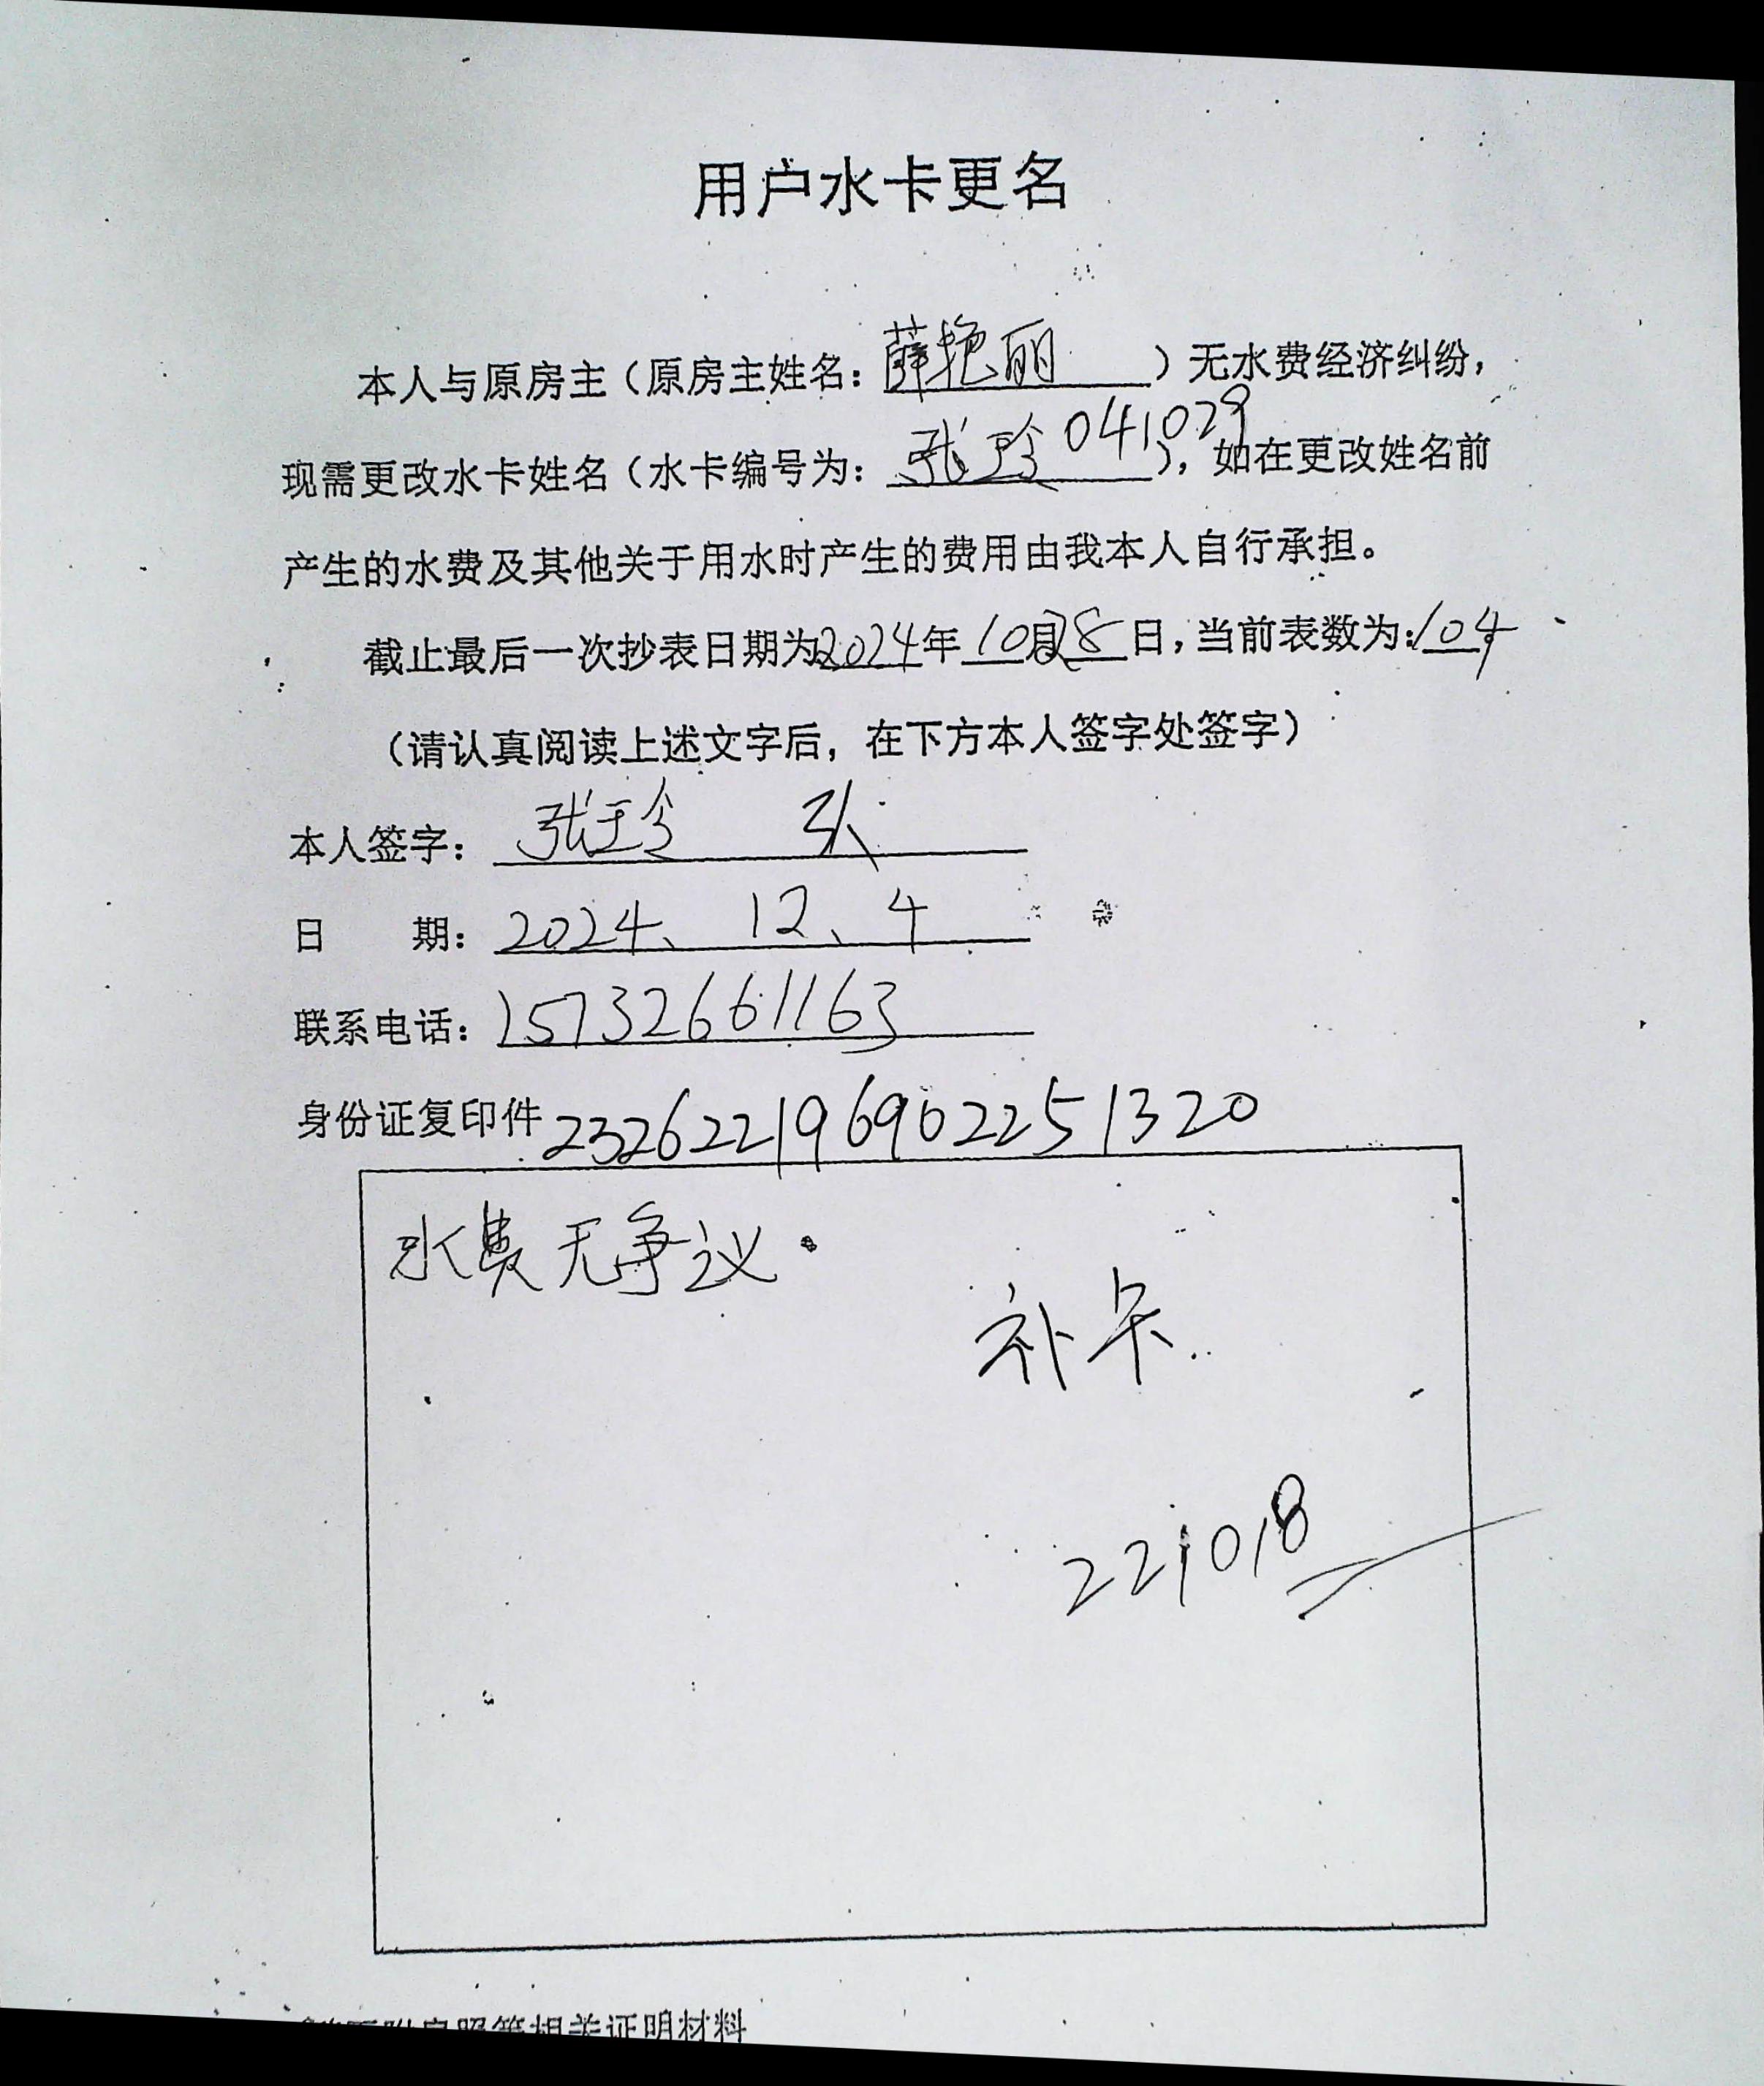 用户水卡更名
本人与原房主（原房主姓名：薛艳丽）无水费经济纠纷，
现需更改水卡姓名（水卡编号为：张玲041029），如在更改姓名前
产生的水费及其他关于用水时产生的费用由我本人自行承担。
截止最后一次抄表日期为2024年10月28日，当前表数为：104
（请认真阅读上述文字后，在下方本人签字处签字）
本人签字：张玲 张
日 期：2024、12、4
联系电话：15732661163
身份证复印件232622196902251320
水费无争议.
补卡
221018
房照等相关证明材料